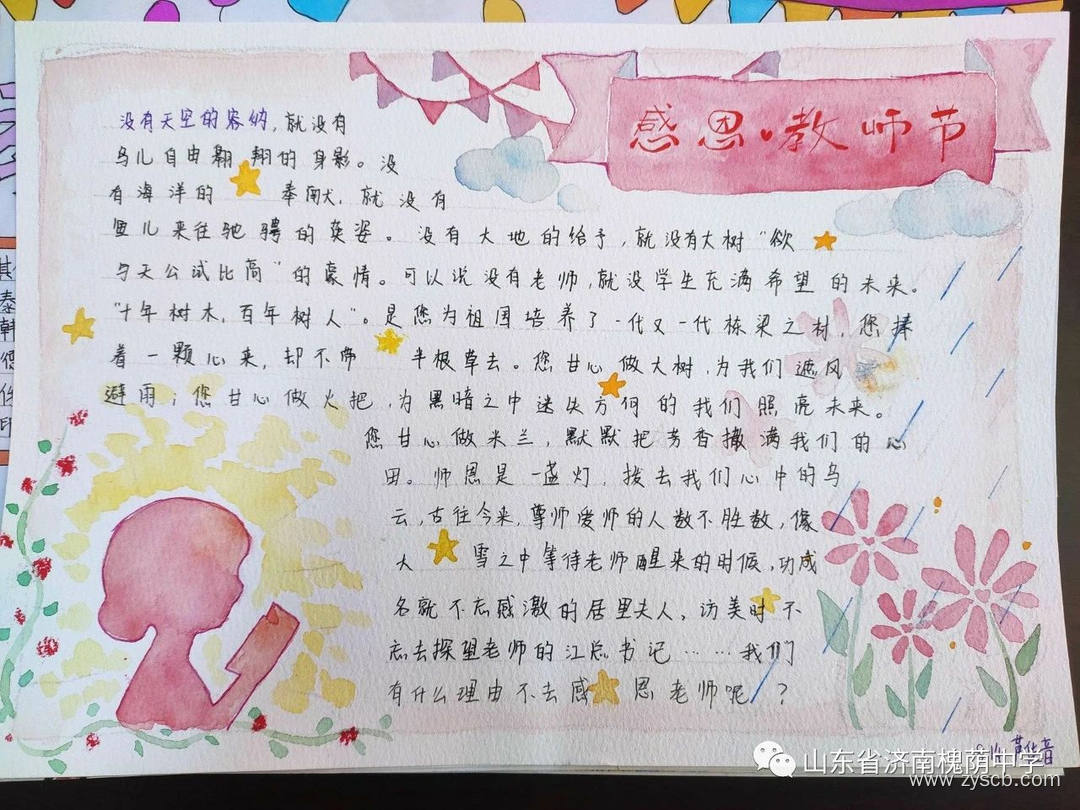 感恩·教师节
没有天空的容纳,就没有
鸟儿自由翱翔的身影。没
有海洋的奉献,就没有
鱼儿来往驰骋的英姿。没有大地的给予,就没有大树“欲
与天公试比高”的豪情。可以说没有老师,就没学生充满希望的未来。
“十年树木,百年树人”。是您为祖国培养了一代又一代栋梁之材,您捧
着一颗心来,却不带半根草去。您甘心做大树,为我们遮风
避雨;您甘心做火把,为黑暗之中迷失方向的我们照亮未来。
您甘心做米兰,默默把芳香撒满我们的心
田。师恩是一盏灯,拨去我们心中的乌
云,古往今来,尊师爱师的人数不胜数,像
大雪之中等待老师醒来的时候,功成
名就不忘感激的居里夫人,访美时不
忘去探望老师的江总书记……我们
有什么理由不去感恩老师呢?
山东省济南槐荫中学
www.zyscb.com